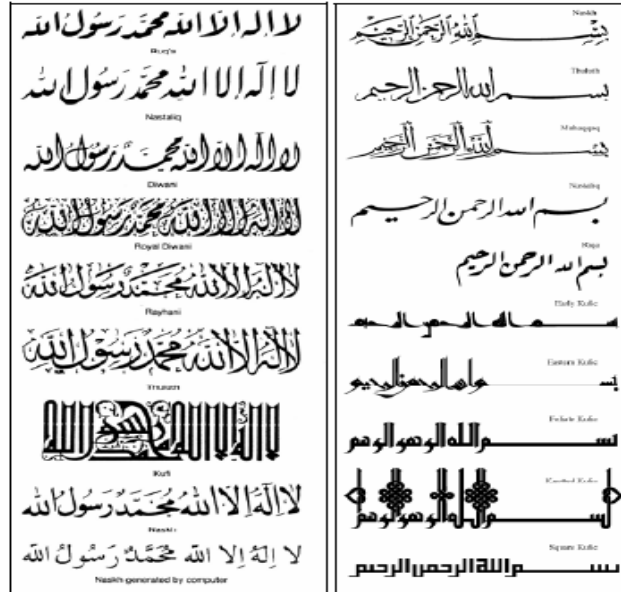 لا إله إلا الله محمد رسول الله
Ruq'a
لا إله إلا الله محمد رسول الله
Nastaliq
لا إله إلا الله محمد رسول الله
Diwani
لا إله إلا الله محمد رسول الله
Royal Diwani
لا إله إلا الله محمد رسول الله
Rayhani
لا إله إلا الله محمد رسول الله
Thuluth
Kufi
لا إله إلا الله محمد رسول الله
Naskh
لا إله إلا الله محمد رسول الله
Naskh generated by computer
Naskh
بسم الله الرحمن الرحيم
Thuluth
بسم الله الرحمن الرحيم
Muhaqqiq
بسم الله الرحمن الرحيم
Nastaliq
بسم الله الرحمن الرحيم
Riqa
بسم الله الرحمن الرحيم
Early Kufic
بسم الله الرحمن الرحيم
Eastern Kufic
بسم الله الرحمن الرحيم
بسم الله الرحمن الرحيم
Knotted Kufic
بسم الله الرحمن الرحيم
Square Kufic
بسم الله الرحمن الرحيم